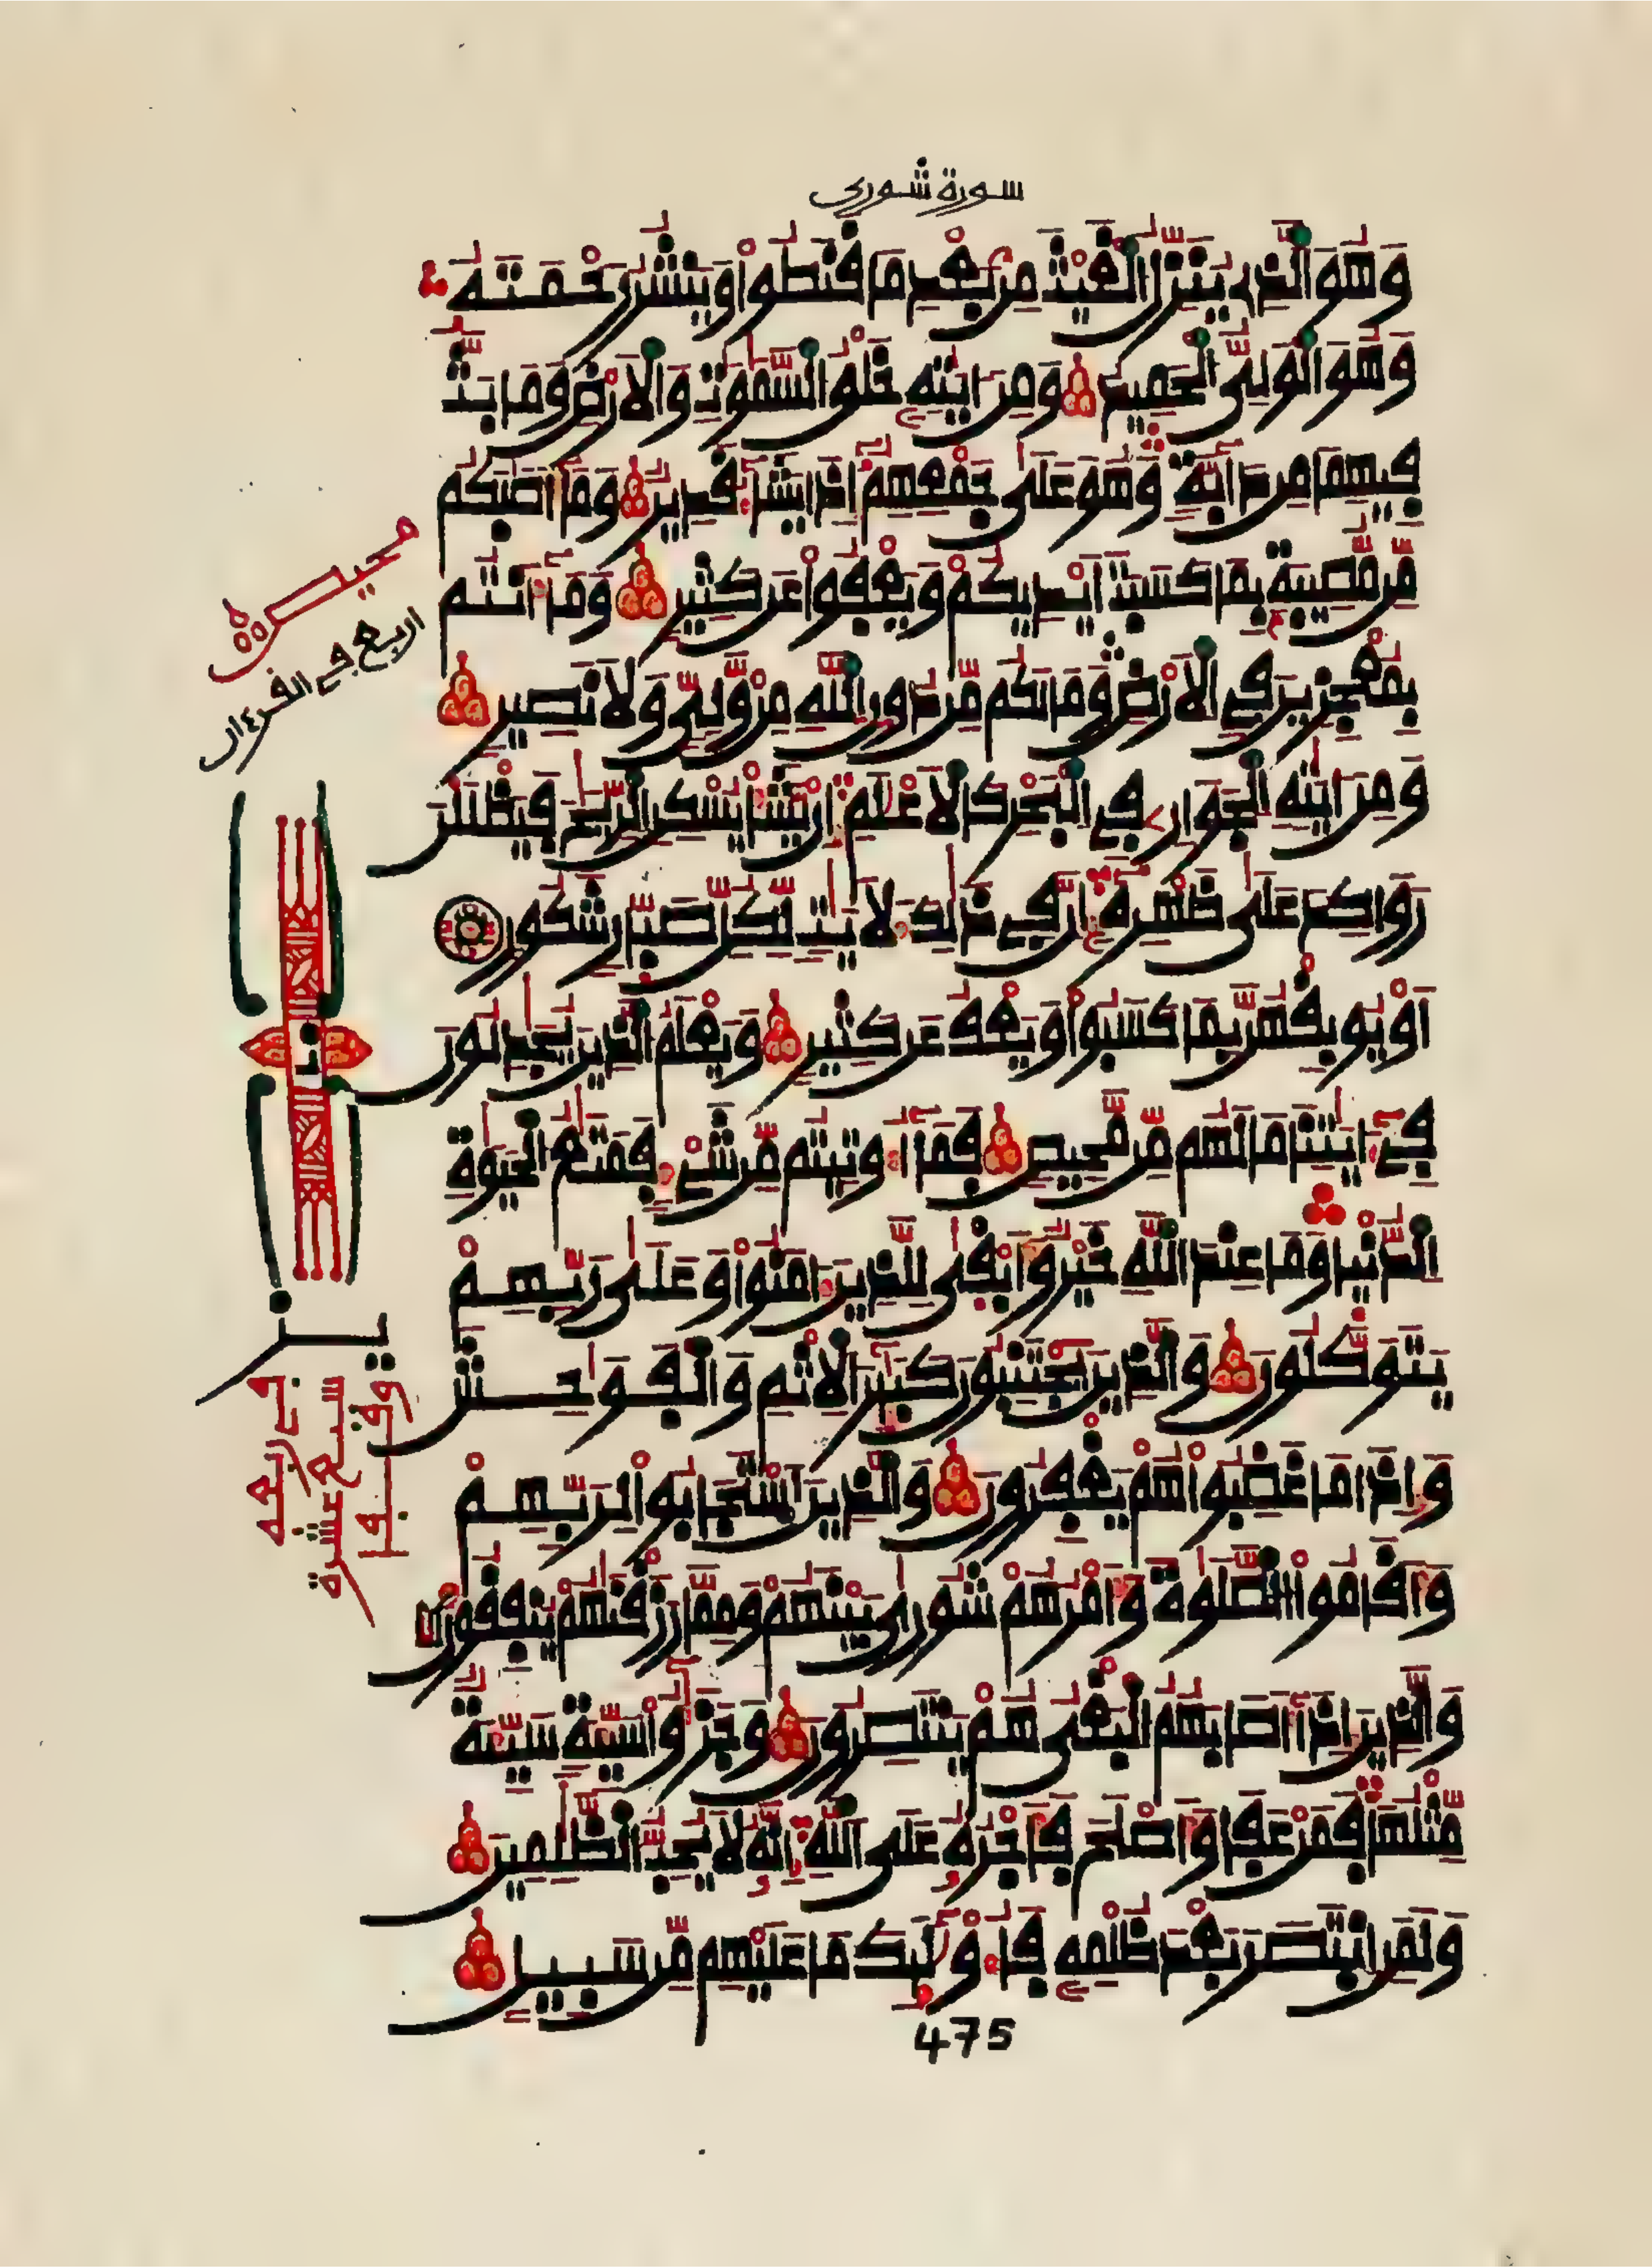 سورة شورى
وَهُوَ الَّذِى يُنَزِّلُ الْغَيْثَ مِنۢ بَعْدِ مَا قَنَطُواْ وَيَنشُرُ رَحْمَتَهُۥ
وَهُوَ الْوَلِىُّ الْحَمِيدُ وَمِنَ ايَٰتِهِۦ خَلْقُ السَّمَٰوَٰتِ وَالَارْضِ وَمَا بَثَّ
فِيهِمَا مِن دَآبَّةٍ وَهُوَ عَلَىٰ جَمْعِهِمُۥٓ إِذَا يَشَآءُ قَدِيرٌ وَمَآ أَصَٰبَكُم
مِّن مُّصِيبَةٍۢ بِمَا كَسَبَتَ اَيْدِيكُمْ وَيَعْفُواْ عَن كَثِيرٍ وَمَآ أَنتُم
بِمُعْجِزِينَ فِى الَارْضِ وَمَا لَكُم مِّن دُونِ اللَّهِ مِنْ وَّلِىٍّ وَلَا نَصِيرٍ
وَمِنَ ايَٰتِهِ الْجَوَارِۦ فِى الْبَحْرِ كَالَاعْلَٰمِ إِنْ يَّشَأْ يُسْكِنِ الرِّيَٰحَ فَيَظْلَلْنَ
رَوَاكِدَ عَلَىٰ ظَهْرِهِۦٓ إِنَّ فِى ذَٰلِكَ لَأٓيَٰتٍ لِّكُلِّ صَبَّارٍ شَكُورٍ
اَوْ يُوبِقْهُنَّ بِمَا كَسَبُواْ وَيَعْفُ عَن كَثِيرٍ وَيَعْلَمُ الَّذِينَ يُجَٰدِلُونَ
فِىٓ ءَايَٰتِنَا مَا لَهُم مِّن مَّحِيصٍ فَمَآ أُوتِيتُم مِّن شَىْءٍ فَمَتَٰعُ الْحَيَوٰةِ
الدُّنْيَا وَمَا عِندَ اللَّهِ خَيْرٌ وَأَبْقَىٰ لِلَّذِينَ ءَامَنُواْ وَعَلَىٰ رَبِّهِمْ
يَتَوَكَّلُونَ وَالَّذِينَ يَجْتَنِبُونَ كَبَٰٓئِرَ الِاثْمِ وَالْفَوَٰحِشَ
وَإِذَا مَا غَضِبُواْ هُمْ يَغْفِرُونَ وَالَّذِينَ اَسْتَجَابُواْ لِرَبِّهِمْ
وَأَقَامُواْ الصَّلَوٰةَ وَأَمْرُهُمْ شُورَىٰ بَيْنَهُمْ وَمِمَّا رَزَقْنَٰهُمْ يُنفِقُونَ
وَالَّذِينَ إِذَآ أَصَابَهُمُ الْبَغْىُ هُمْ يَنتَصِرُونَ وَجَزَٰٓؤُاْ سَيِّئَةٍ سَيِّئَةٌ
مِّثْلُهَا فَمَنْ عَفَا وَأَصْلَحَ فَأَجْرُهُۥ عَلَى اللَّهِ إِنَّهُۥ لَا يُحِبُّ الظَّٰلِمِينَ
وَلَمَنِ اِنتَصَرَ بَعْدَ ظُلْمِهِۦ فَأُوْلَٰٓئِكَ مَا عَلَيْهِم مِّن سَبِيلٍ
475
محيص
اربع فى القرءان